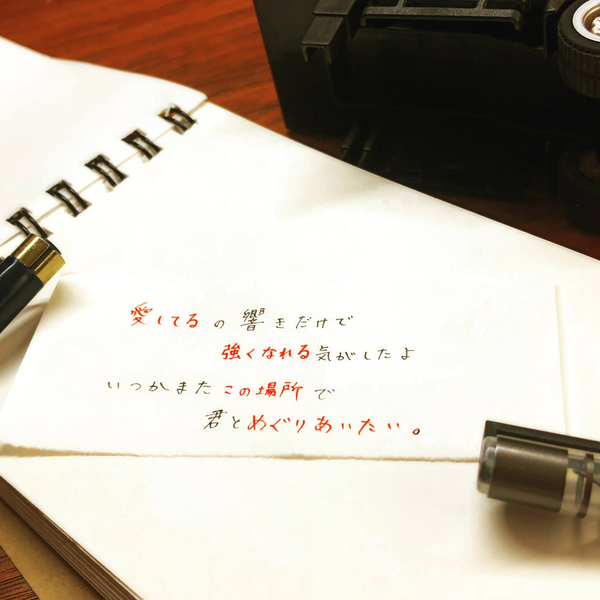 愛してるの響きだけで
強くなれる気がしたよ
いつかまたこの場所で
君とめぐりあいたい。